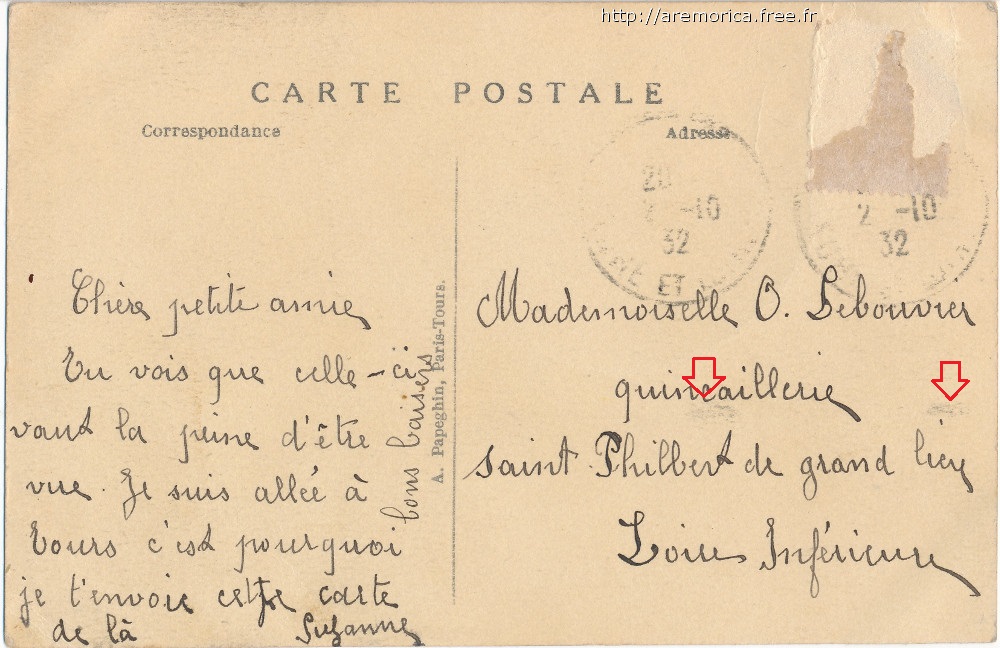 http://aremorica.free.fr
CARTE POSTALE
Correspondance
Adresse
20
2 -10
32
2 -10
32
ET
Chère petite amie
Tu vois que celle-ci
vaut la peine d'être
vue. Je suis allée à
Tours c'est pourquoi
je t'envoie cette carte
de là
Suzanne
bons baisers
A. Papeghin, Paris-Tours.
Mademoiselle O. Lebouvier
quincaillerie
saint Philbert de grand lieu
Loire Inférieure